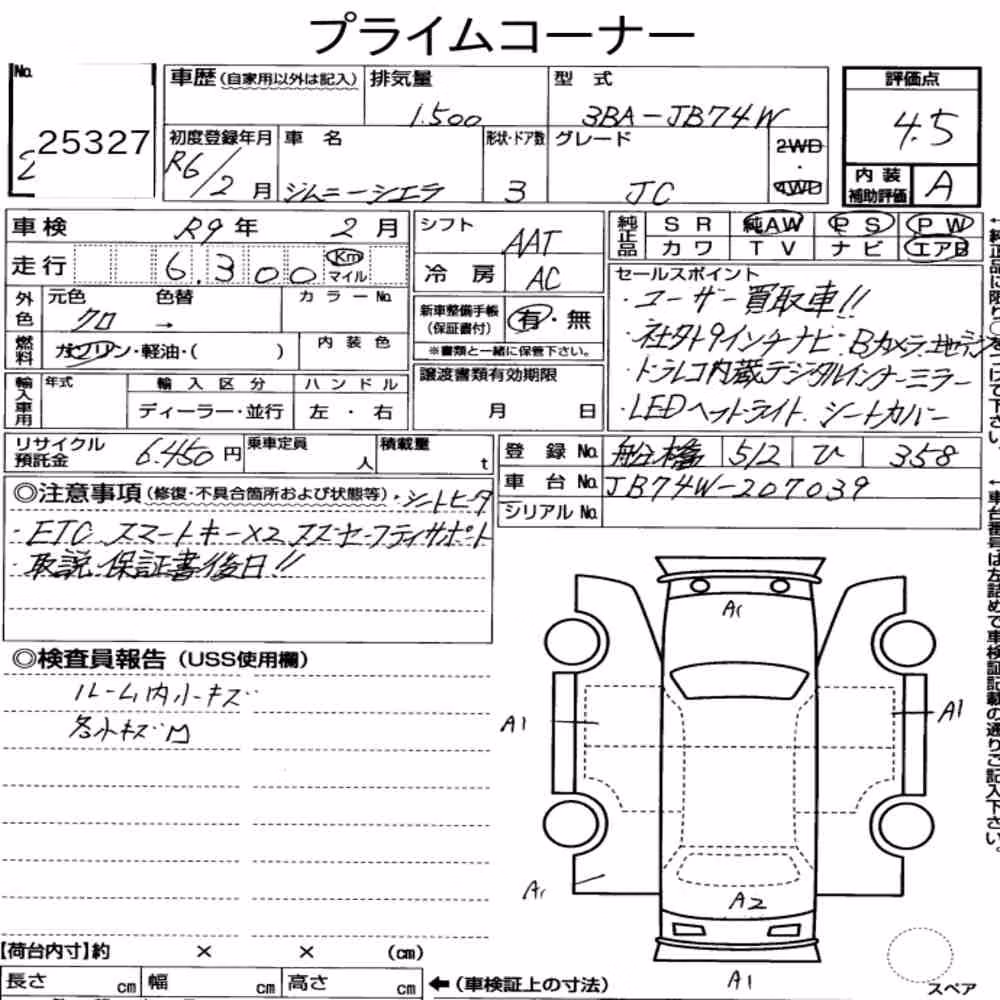 プライムコーナー
No.
25327
車歴(自家用以外は記入)
排気量 1.500
型式 3BA-JB74W
評価点 4.5
初度登録年月 R6/2月
車名 ジムニーシエラ
形状・ドア数 3
グレード JC
2WD・4WD
内装補助評価 A
車検 R9年 2月
シフト AAT
純正品 SR 純AW PS PW
カワ TV ナビ エアB
走行 6,300 Km マイル
冷房 AC
外色 元色 クロ → 色替
カラーNo.
新車整備手帳(保証書付) 有・無
※書類と一緒に保管下さい。
セールスポイント
・ユーザー買取車!!
・社外9インチナビ・Bカメラ・地デジ
・ドラレコ内蔵デジタルインナーミラー
・LEDヘッドライト.シートカバー
燃料 ガソリン・軽油・( )
内装色
輸入車用 年式
輸入区分 ディーラー・並行
ハンドル 左・右
譲渡書類有効期限
月 日
リサイクル預託金 6.450円
乗車定員 人
積載量 t
登録No. 船橋 512 ひ 358
車台No. JB74W-207039
シリアルNo.
◎注意事項(修復・不具合箇所および状態等)・シートヒータ
・ETC スマートキー×2 スズセーフティサポート
・取説・保証書後日!!
◎検査員報告(USS使用欄)
ルーム内小キズ
各小キズM
A1
A1
A1
A1
A2
A1
【荷台内寸】約 × × (cm)
長さ cm 幅 cm 高さ cm
←(車検証上の寸法)
スペア
←純正品に限り○をつけて下さい。
←車台番号は左詰めで車検証記載の通りご記入下さい。